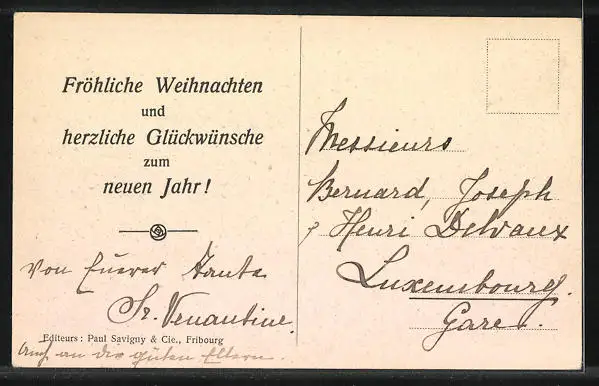 Fröhliche Weihnachten
und
herzliche Glückwünsche
zum
neuen Jahr!
von Euerer Tante
Sr. Venantine.
Editeurs: Paul Savigny & Cie., Fribourg
auch an die guten Eltern.
Messieurs
Bernard, Joseph
Henri Delvaux
Luxembourg.
Gare.